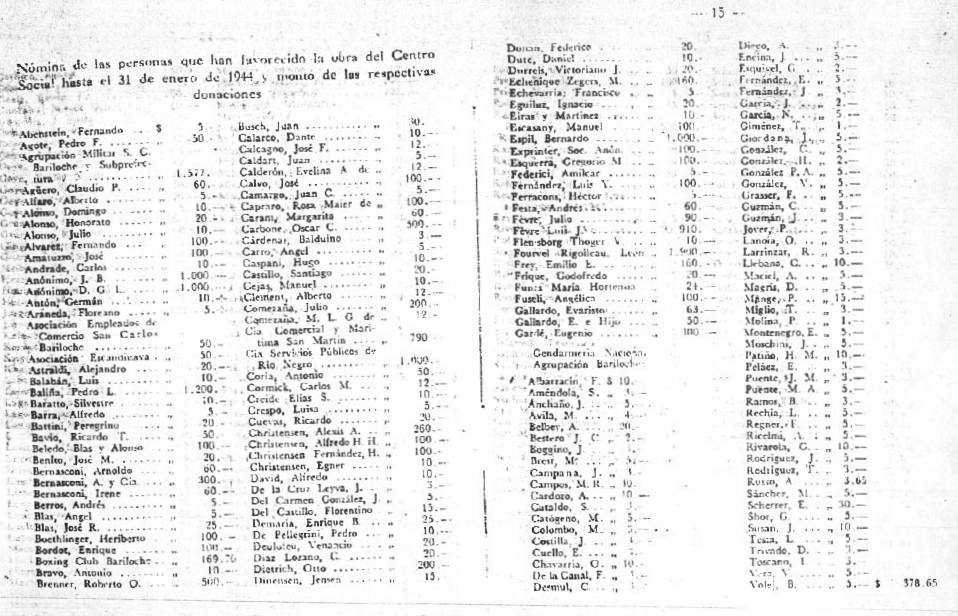 — 15 —
Nómina de las personas que han favorecido la obra del Centro
Social hasta el 31 de enero de 1944 y monto de las respectivas
donaciones
Abenstein, Fernando .. $ 5.—
Agote, Pedro F. ........ „ 50.—
Agrupación Militar S. C.
Bariloche y Subprefec-
tura ........ „ 1.577.—
Agüero, Claudio P. .... „ 60.—
Alfaro, Alberto ........ „ 5.—
Alonso, Domingo ...... „ 10.—
Alonso, Honorato ...... „ 20.—
Alonso, Julio ........ „ 10.—
Alvarez, Fernando .... „ 100.—
Amatuzzo, José ...... „ 100.—
Andrade, Carlos ...... „ 10.—
Anónimo, J. B. ...... „ 1.000.—
Anónimo, D. G. L. .... „ 1.000.—
Antón, Germán ...... „ 10.—
Araneda, Floreano .... „ 5.—
Asociación Empleados de
Comercio San Carlos
Bariloche ........ „ 50.—
Asociación Escandinava . „ 50.—
Astraldi, Alejandro .... „ 20.—
Balabán, Luis ........ „ 10.—
Baliña, Pedro L. ...... „ 1.200.—
Baratto, Silvestre ...... „ 10.—
Barra, Alfredo ........ „ 5.—
Battini, Peregrino .... „ 20.—
Bavio, Ricardo T. .... „ 50.—
Beledo, Blas y Alonso „ 100.—
Benito, José M. ...... „ 20.—
Bernasconi, Arnoldo .. „ 60.—
Bernasconi, A. y Cia. .. „ 300.—
Bernasconi, Irene .... „ 60.—
Berros, Andrés ...... „ 5.—
Blas, Angel ........ „ 5.—
Blas, José R. ........ „ 25.—
Boethlinger, Heriberto „ 100.—
Bordot, Enrique ...... „ 100.—
Boxing Club Bariloche . „ 169.76
Bravo, Antonio ...... „ 10.—
Brenner, Roberto O. .. „ 500.—
Busch, Juan ........ „ 30.—
Calarco, Dante ...... „ 10.—
Calcagno, José F. .... „ 12.—
Caldart, Juan ........ „ 5.—
Calderón, Evelina A de „ 12.—
Calvo, José ........ „ 100.—
Camargo, Juan C. .... „ 5.—
Capraro, Rosa Maier de „ 100.—
Carani, Margarita .... „ 60.—
Carbone, Oscar C. .... „ 500.—
Cárdenas, Balduino .. „ 3.—
Carro, Angel ........ „ 5.—
Caspani, Hugo ...... „ 10.—
Castillo, Santiago .... „ 20.—
Cejas, Manuel ........ „ 10.—
Clement, Alberto .... „ 12.—
Comezaña, Julio ...... „ 200.—
Comezaña, M. L. G. de „ 12.—
Cia Comercial y Mari-
tima San Martin .... „ 790
Cia Servicios Públicos de
Rio Negro ........ „ 1.000.—
Coria, Antonio ...... „ 50.—
Cormick, Carlos M. .. „ 12.—
Creide Elias S. ...... „ 10.—
Crespo, Luisa ...... „ 5.—
Cuevas, Ricardo ...... „ 20.—
Christensen, Alexis A. .. „ 260.—
Christensen, Alfredo H. H. „ 100.—
Christensen Fernández, H. „ 100.—
Christensen, Egner .... „ 10.—
David, Alfredo ...... „ 10.—
De la Cruz Leyva, J. .. „ 3.—
Del Carmen González, J. „ 5.—
Del Castillo, Florentino „ 15.—
Demaria, Enrique B. .. „ 25.—
De Pellegrini, Pedro .. „ 10.—
Deululeu, Venancio .. „ 20.—
Diaz Lozano, C. ...... „ 20.—
Dietrich, Otto ........ „ 200.—
Dinensen, Jensen .... „ 15.—
Federico ...... „ 20.—
Dute, Daniel ...... „ 10.—
Durreis, Victoriano J. .. „ 20.—
Echenique Zegers, M. „ 160.—
Echevarria, Francisco .. „ 5.—
Eguiluz, Ignacio .... „ 20.—
Eiras y Martinez .... „ 10.—
Escasany, Manuel .... „ 100.—
Espil, Bernardo .... „ 1.000.—
Exprinter, Soc. Anón. .. „ 100.—
Esquerra, Gregorio M „ 100.—
Federici, Amilcar .... „ 5.—
Fernández, Luis V. .. „ 100.—
Ferracons, Héctor .. „ 5.—
Festa, Andrés .... „ 60.—
Fèvre, Julio ...... „ 90.—
Fèvre Luis J. .... „ 910.—
Flensborg Thoger V. „ 10.—
Fourvel Rigolleau, León „ 1.900.—
Frey, Emilio E. .... „ 160.—
Frique, Godofredo .. „ 20.—
Funes Maria Hortensia „ 24.—
Fuseli, Angélica .... „ 100.—
Gallardo, Evaristo .. „ 63.—
Gallardo, E. e Hijo .. „ 50.—
Gardé, Eugenio .... „ 100.—
Gendarmeria Nacional
Agrupación Bariloche
Albarracín, F. $ 10.—
Améndola, S. „ 4.—
Anchaño, J. .. „ 5.—
Avila, M. .. „ 4.—
Belber, A. .. „ 20.—
Bestero J. C. „ 2.—
Boggino, J. „ 5.—
Brest, M. .. „ 3.—
Campana, J. „ 3.—
Campos, M. R. „ 10.—
Cardozo, A. .. „ 10.—
Cataldo, S. .. „ 3.—
Catógeno, M. „ 5.—
Colombo, M. „ 5.—
Costilla, J. .. „ 3.—
Cuello, E. .. „ 3.—
Chavarria, O. „ 10.—
De la Canal, F. „ 3.—
Dermul, C. .. „ 5.—
Diego, A. „ 3.—
Encina, J. .. „ 5.—
Esquivel, G. .. „ 2.—
Fernández, E. „ 5.—
Fernández, J. „ 3.—
Garcia, J. .. „ 2.—
Garcia, N. .. „ 5.—
Giménez, T. .. „ 1.—
Giordana, J. .. „ 5.—
González, C. „ 5.—
González, H. „ 2.—
González P. A. „ 5.—
González, V. „ 5.—
Grasser, F. .. „ 5.—
Guzmán, C. .. „ 5.—
Guzmán, J. .. „ 3.—
Jover, P. .. „ 3.—
Lanoia, O. .. „ 3.—
Larrinzar, R. „ 3.—
Liebana, C. .. „ 10.—
Maciel, A. .. „ 5.—
Magris, D. .. „ 5.—
Mange, P. .. „ 15.—
Miglio, T. .. „ 3.—
Molina, P. .. „ 1.—
Montenegro, E. „ 5.—
Moschini, J. .. „ 5.—
Patiño, H. M. „ 10.—
Peláez, E. .. „ 3.—
Puente, J. M. „ 3.—
Puente, M. A. „ 5.—
Ramos, B. .. „ 3.—
Rechia, L. .. „ 5.—
Regner, F. .. „ 5.—
Ricelmi, A. .. „ 5.—
Rivarola, G. .. „ 10.—
Rodriguez, J. „ 5.—
Rodriguez, T. „ 3.—
Rusio, A. .. „ 3.65
Sánchez, M. .. „ 5.—
Scherrer, E. .. „ 30.—
Shor, G. .. „ 5.—
Susan, J. .. „ 10.—
Testa, L. .. „ 5.—
Triendo, D. .. „ 3.—
Toscano, I. .. „ 3.—
Vera, V. .. „ 5.—
Volej, B. .. „ 5.— $ 378.65